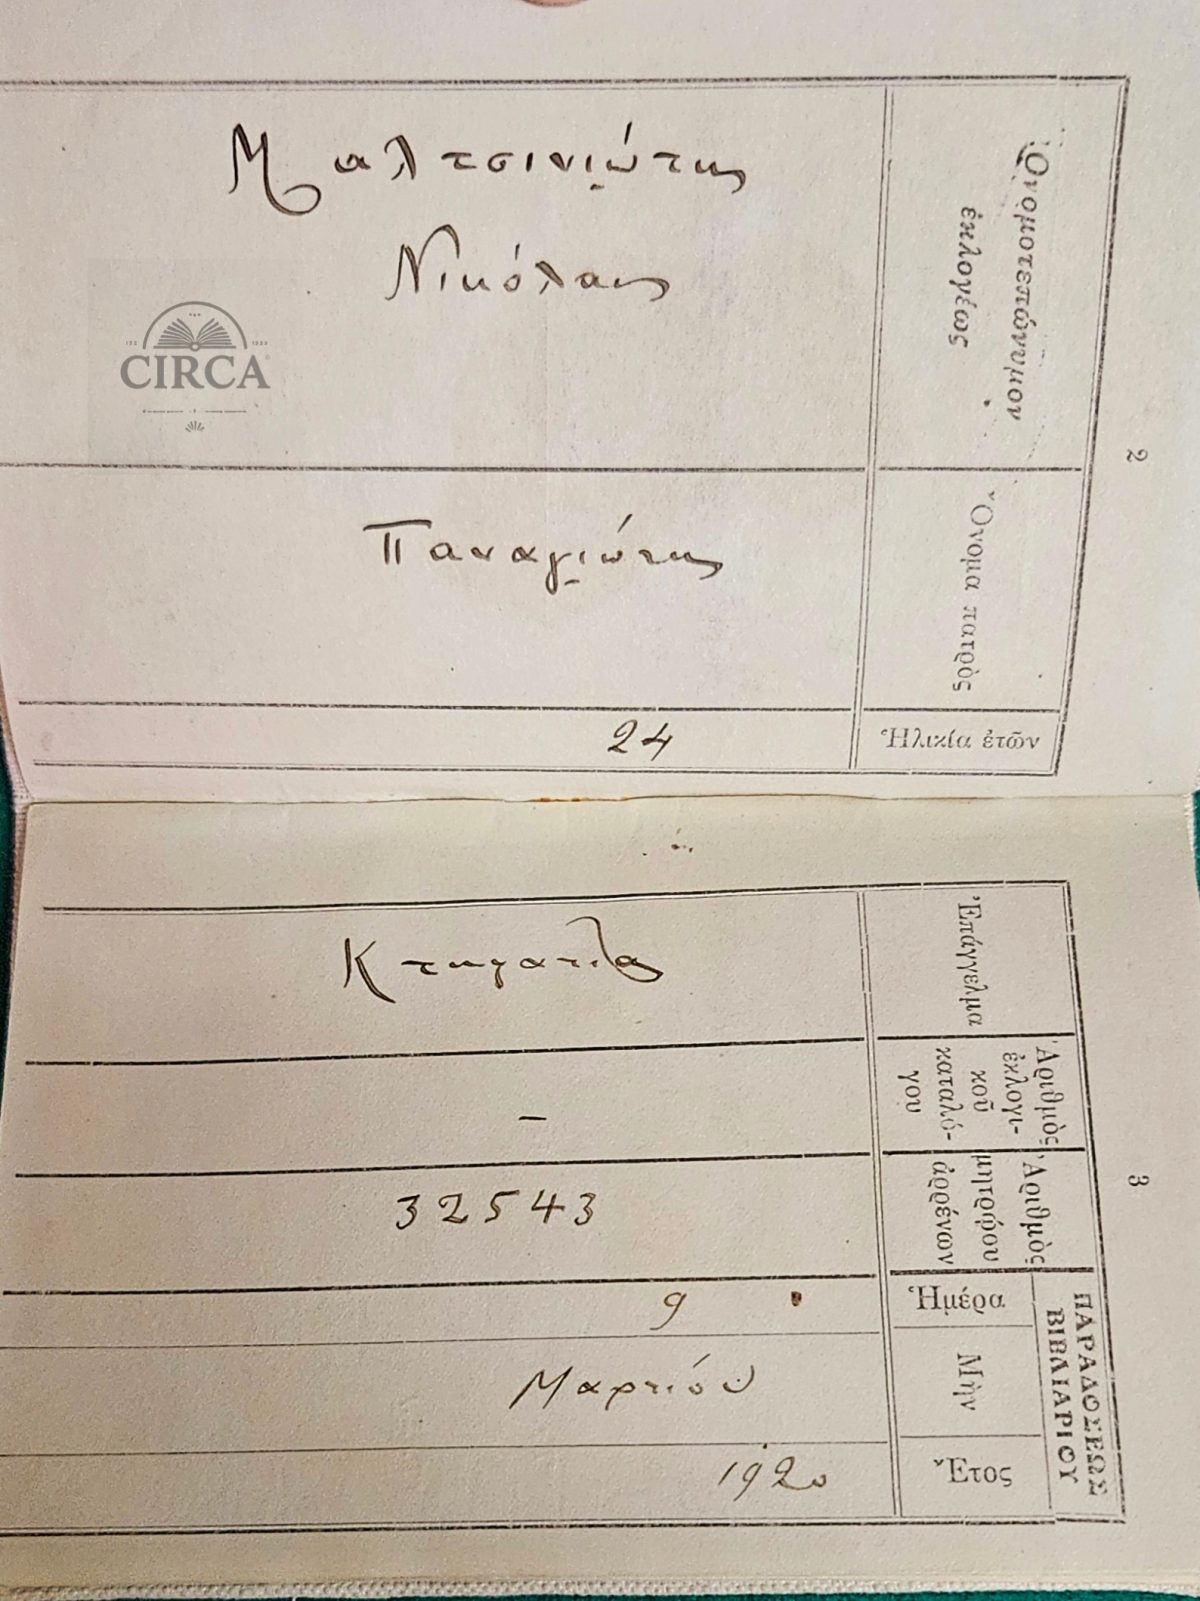 2
Ὀνοματεπώνυμον
ἐκλογέως
Μαλτσινιώτης
Νικόλαος
Ὄνομα πατρὸς
Παναγιώτης
Ἡλικία ἐτῶν
24
CIRCA
3
Ἐπάγγελμα
Κτηματίας
Ἀριθμὸς
ἐκλογι-
κοῦ
καταλό-
γου
–
Ἀριθμὸς
μητρῴου
ἀρρένων
32543
ΠΑΡΑΔΟΣΕΩΣ
ΒΙΒΛΙΑΡΙΟΥ
Ἡμέρα
9
Μὴν
Μαρτίου
Ἔτος
1920